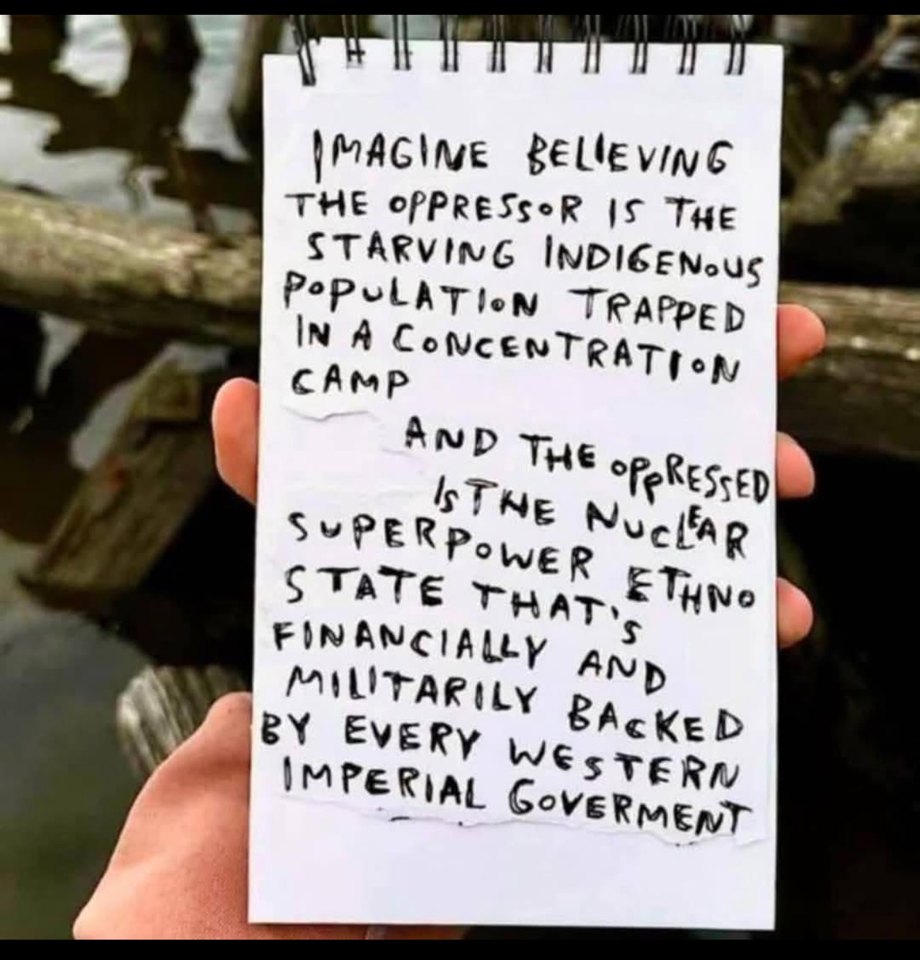 IMAGINE BELIEVING
THE OPPRESSOR IS THE
STARVING INDIGENOUS
POPULATION TRAPPED
IN A CONCENTRATION
CAMP
AND THE OPPRESSED
IS THE NUCLEAR
SUPERPOWER ETHNO
STATE THAT'S
FINANCIALLY AND
MILITARILY BACKED
BY EVERY WESTERN
IMPERIAL GOVERMENT